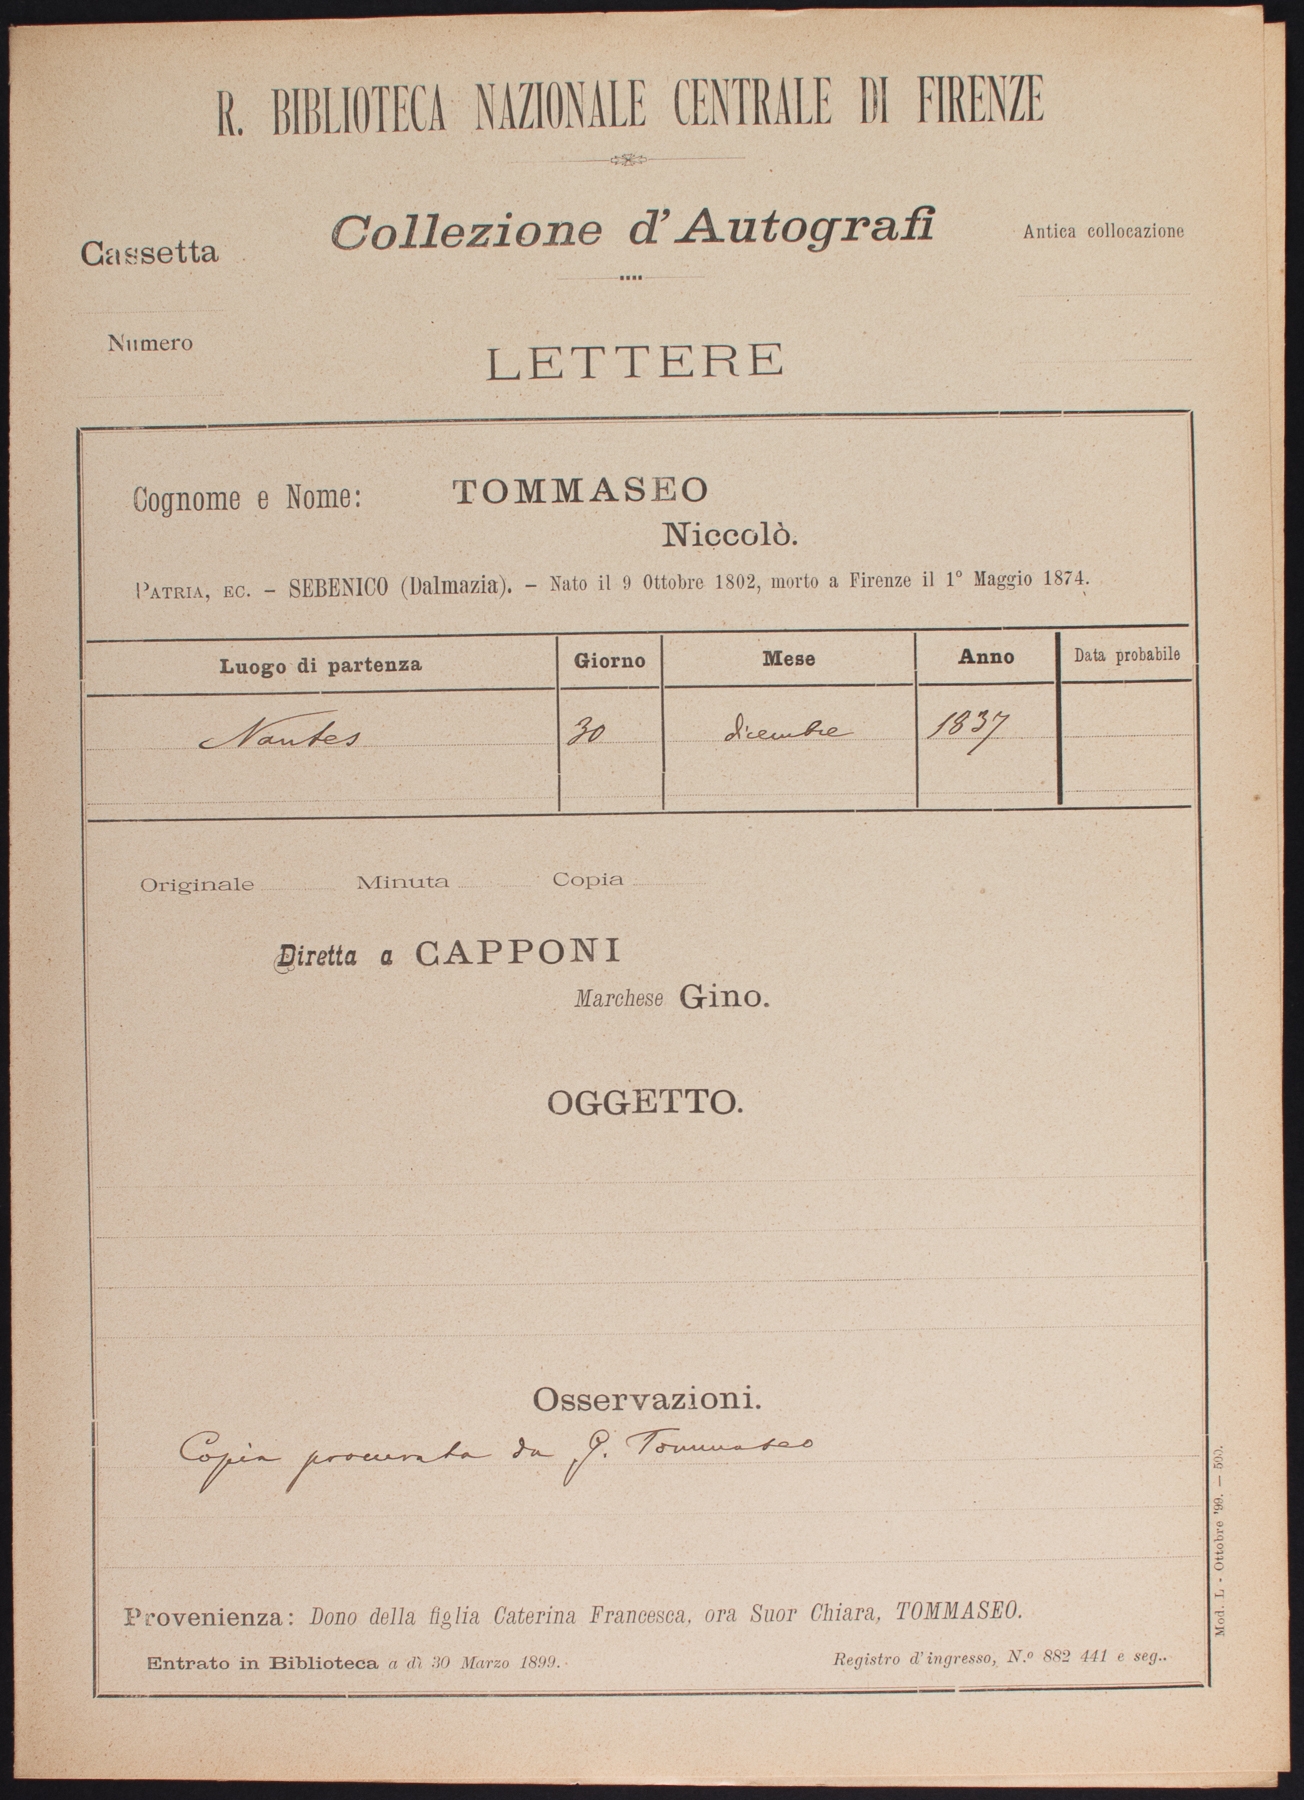 R. BIBLIOTECA NAZIONALE CENTRALE DI FIRENZE
Collezione d'Autografi
Cassetta
Antica collocazione
Numero
LETTERE
Cognome e Nome: TOMMASEO
Niccolò.
PATRIA, EC. - SEBENICO (Dalmazia). - Nato il 9 Ottobre 1802, morto a Firenze il 1° Maggio 1874.
Luogo di partenza Giorno Mese Anno Data probabile
Nantes 30 dicembre 1837
Originale Minuta Copia
Diretta a CAPPONI
Marchese Gino.
OGGETTO.
Osservazioni.
Copia procurata da G. Tommaseo
Provenienza: Dono della figlia Caterina Francesca, ora Suor Chiara, TOMMASEO.
Entrato in Biblioteca a dì 30 Marzo 1899. Registro d'ingresso, N.º 882 441 e seg..
Mod. L - Ottobre '99. — 500.